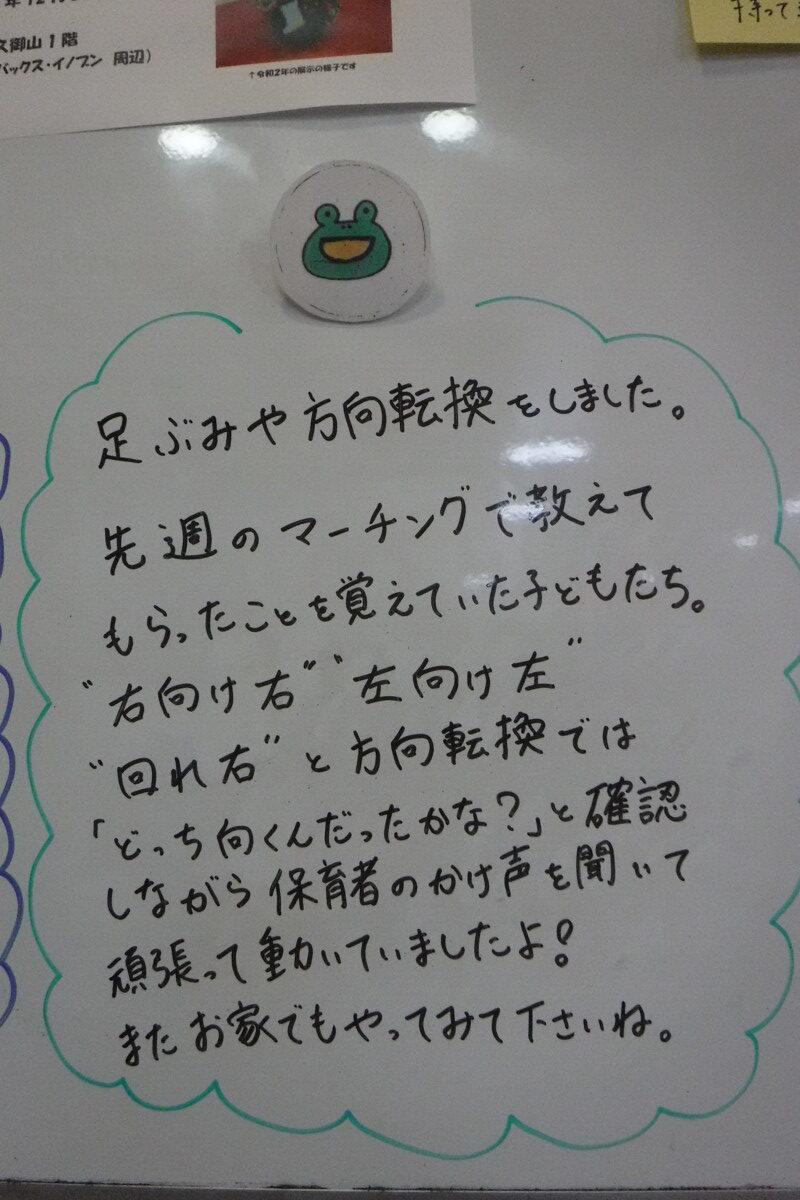 久御山1階
バックス・イノブン 周辺）
↑令和2年の展示の様子です
持って
足ぶみや方向転換をしました。
先週のマーチングで教えて
もらったことを覚えていた子どもたち。
"右向け右" "左向け左"
"回れ右"と方向転換では
「どっち向くんだったかな?」と確認
しながら保育者のかけ声を聞いて
頑張って動いていましたよ!
またお家でもやってみて下さいね。